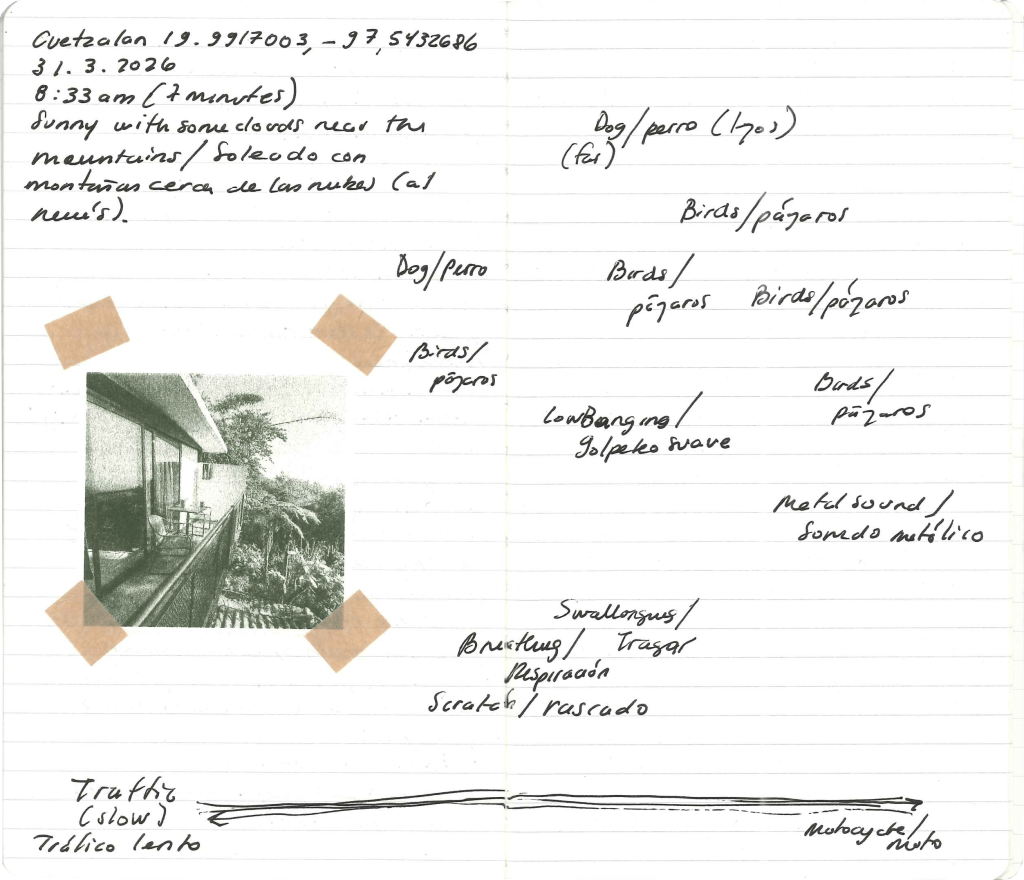 Cuetzalan 19.9917003, -97,5432686
31. 3. 2026
8:33am (7 minutes)
Sunny with some clouds near the
mountains/ Soleado con
montañas cerca de las nubes (al
revés).
Dog/perro (lejos)
(far)
Birds/pájaros
Dog/Perro
Birds/
pájaros
Birds/pájaros
Birds/
pájaros
Birds/
pájaros
Low Banging/
Golpeteo suave
Metal sound/
Sonido metálico
Swallowing/
Tragar
Breathing/
Respiración
Scratch/rascado
Traffic
(slow)
Tráfico lento
Motocycle/
moto